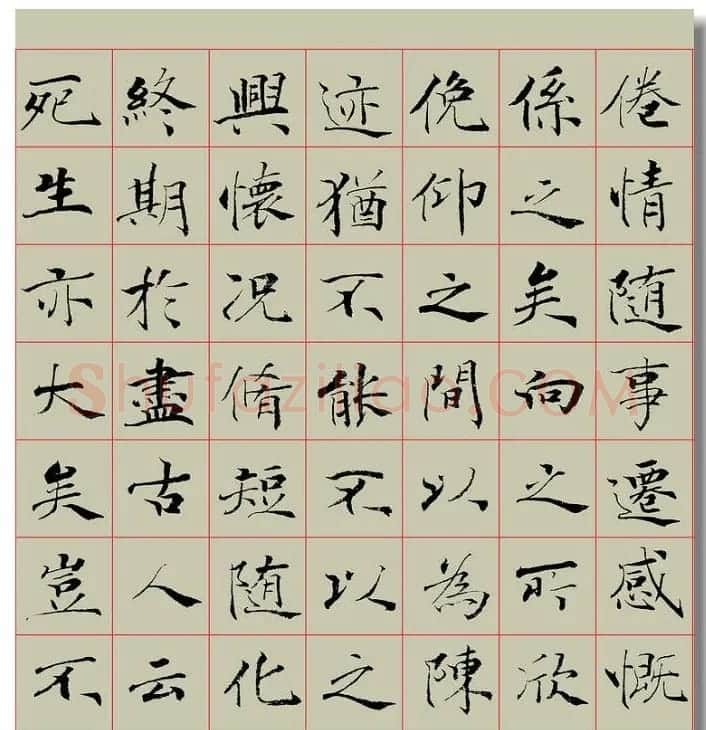 倦情随事遷感慨
係之矣向之所欣
俛仰之間以為陳
迹猶不能不以之
興懷況脩短随化
終期於盡古人云
死生亦大矣豈不
Shufaziliao.COM